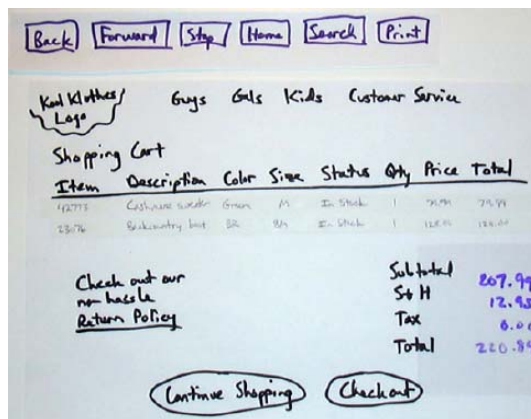 Back Forward Stop Home Search Print
Kool Klothes Guys Gals Kids Customer Service
Logo
Shopping Cart
Item Description Color Size Status Qty Price Total
Cashmere sweater Green M In Stock 1 79.99
Backcountry boot In Stock 1
Check out our
no hassle
Return Policy
Subtotal 207.99
S+H 12.95
Tax
Total
Continue Shopping Checkout